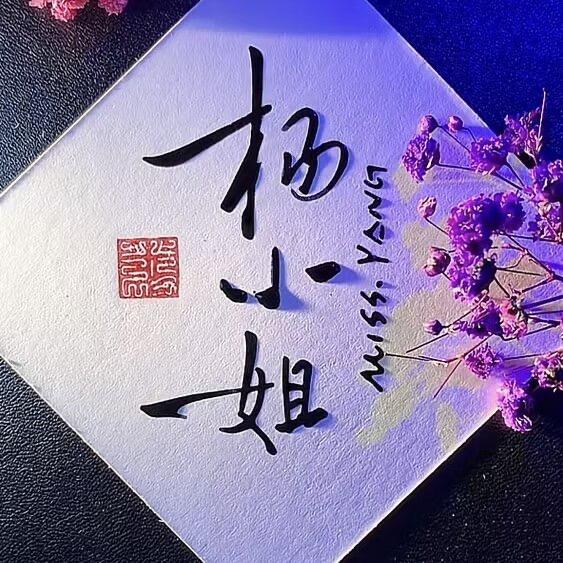 杨小姐
MISS.YANG